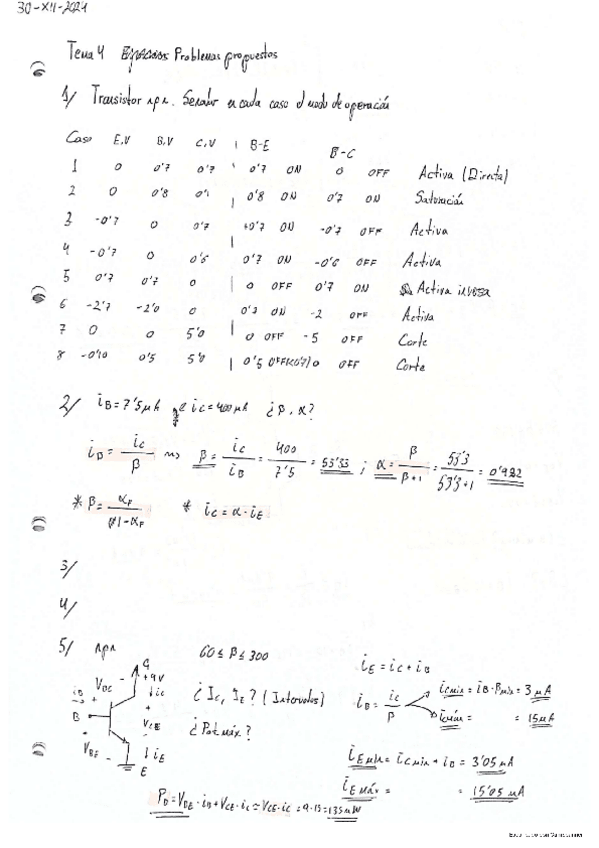 30-XII-2021
Tema 4 Problemas propuestos
1/ Transistor npn. Señalar en cada caso el modo de operación
Caso E,V B,V C,V | B-E B-C
1 0 0'7 0'7 0'7 ON 0 OFF Activa (Directa)
2 0 0'8 0'1 | 0'8 ON 0'7 ON Saturación
3 -0'7 0 0'7 +0'7 ON -0'7 OFF Activa
4 -0'7 0 0'6 0'7 ON -0'6 OFF Activa
5 0'7 0'7 0 | 0 OFF 0'7 ON Activa inversa
6 -2'7 -2'0 0 0'7 ON -2 OFF Activa
7 0 0 5'0 0 OFF -5 OFF Corte
8 -0'10 0'5 5'0 | 0'5 OFF(<0'7) 0 OFF Corte
2/ iB=7'5μA iC=400μA ¿β, α?
iB = iC/β => β = iC/iB = 400/7'5 = 53'33 ; α = β/β+1 = 53'3/53'3+1 = 0'982
* β = αF/1-αF * iC = α·iE
3/
4/
5/ npn 60 ≤ β ≤ 300 iE = iC + iB
C
+9V
VBC - iC
iB + VCE
B
VBE - iE
E
¿ IC, IE? (Intervalos)
¿ Pot máx?
iB = iC/β iCmin = iB·βmin = 3 μA
iCmáx = = 15 μA
iEmin = iCmin + iB = 3'05 μA
iEmáx = = 15'05 μA
PD = VBE·iB + VCE·iC ≃ VCE·iC = 9·15 = 135 μW